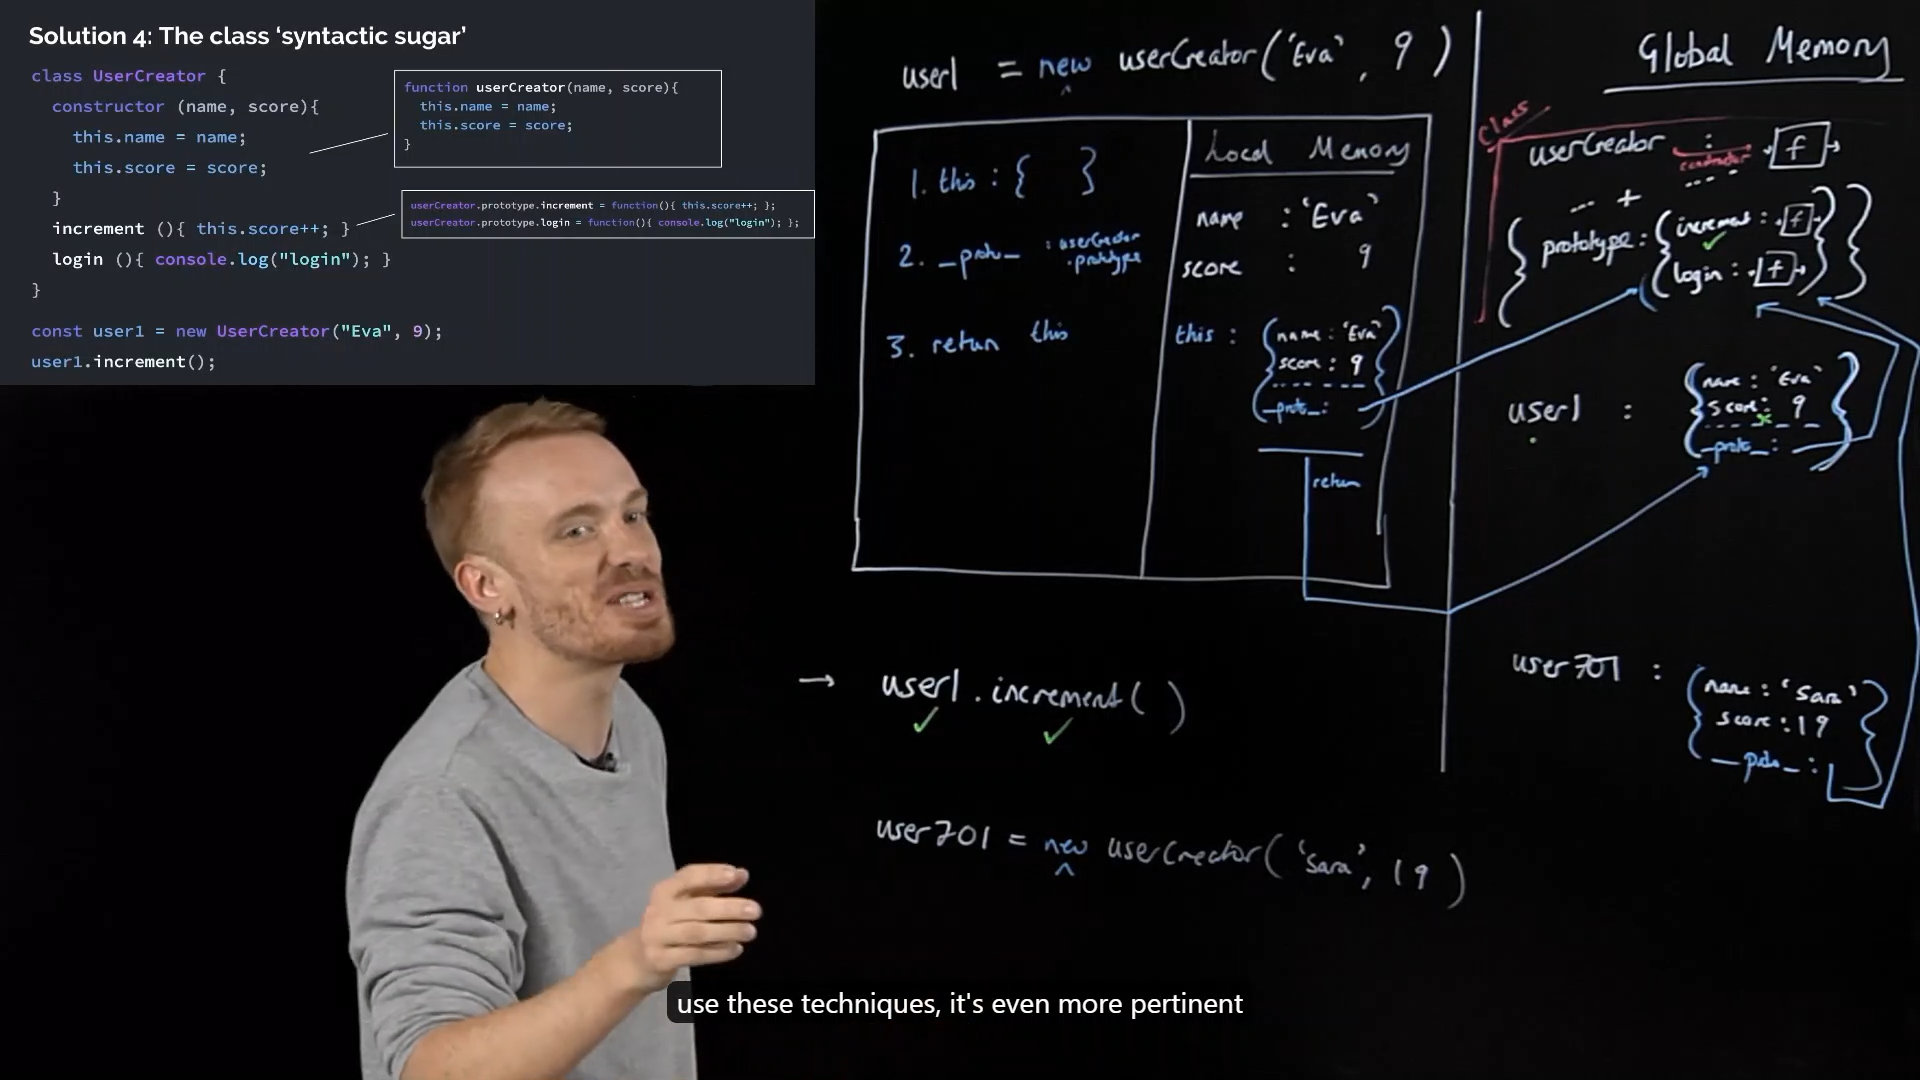 Solution 4: The class ‘syntactic sugar’
class UserCreator {
constructor (name, score){
this.name = name;
this.score = score;
}
increment (){ this.score++; }
login (){ console.log("login"); }
}
const user1 = new UserCreator("Eva", 9);
user1.increment();
function userCreator(name, score){
this.name = name;
this.score = score;
}
userCreator.prototype.increment = function(){ this.score++; };
userCreator.prototype.login = function(){ console.log("login"); };
user1 = new userCreator('Eva', 9)
1. this : { }
2. __proto__ : userCreator
.prototype
3. return this
Local Memory
name : 'Eva'
score : 9
this : { name : 'Eva'
score : 9
__proto__ : }
return
Global Memory
Class
userCreator : f
constructor
+
{ prototype : { increment : f } }
login : f
user1 : { name : 'Eva'
score : 9
__proto__ : }
user701 : { name : 'Sara'
score : 19
__proto__ : }
→ user1.increment( )
user701 = new userCreator('Sara', 19)
use these techniques, it's even more pertinent